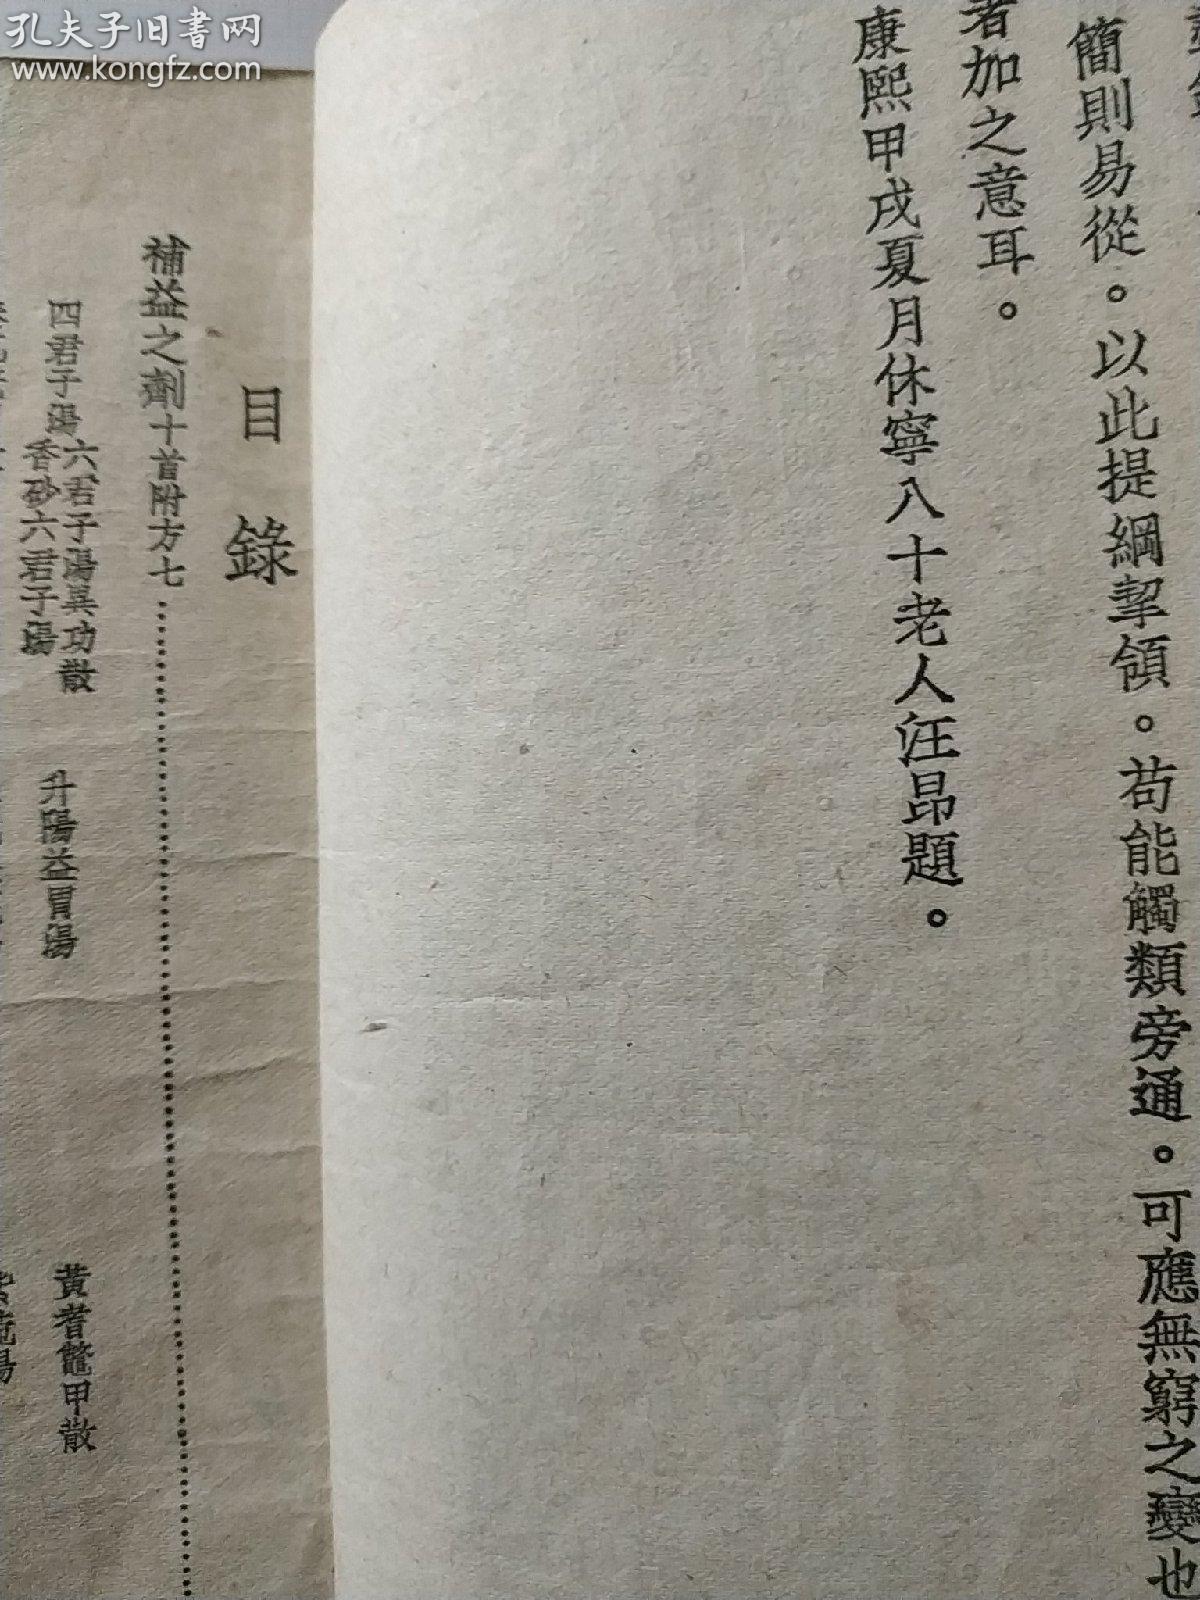 孔夫子旧書网
www.kongfz.com
簡則易從。以此提綱挈領。苟能觸類旁通。可應無窮之變也
者加之意耳。
康熙甲戌夏月休寧八十老人汪昂題。
目錄
補益之劑十首附方七
四君子湯 六君子湯異功散 香砂六君子湯 升陽益胃湯 黃耆鼈甲散